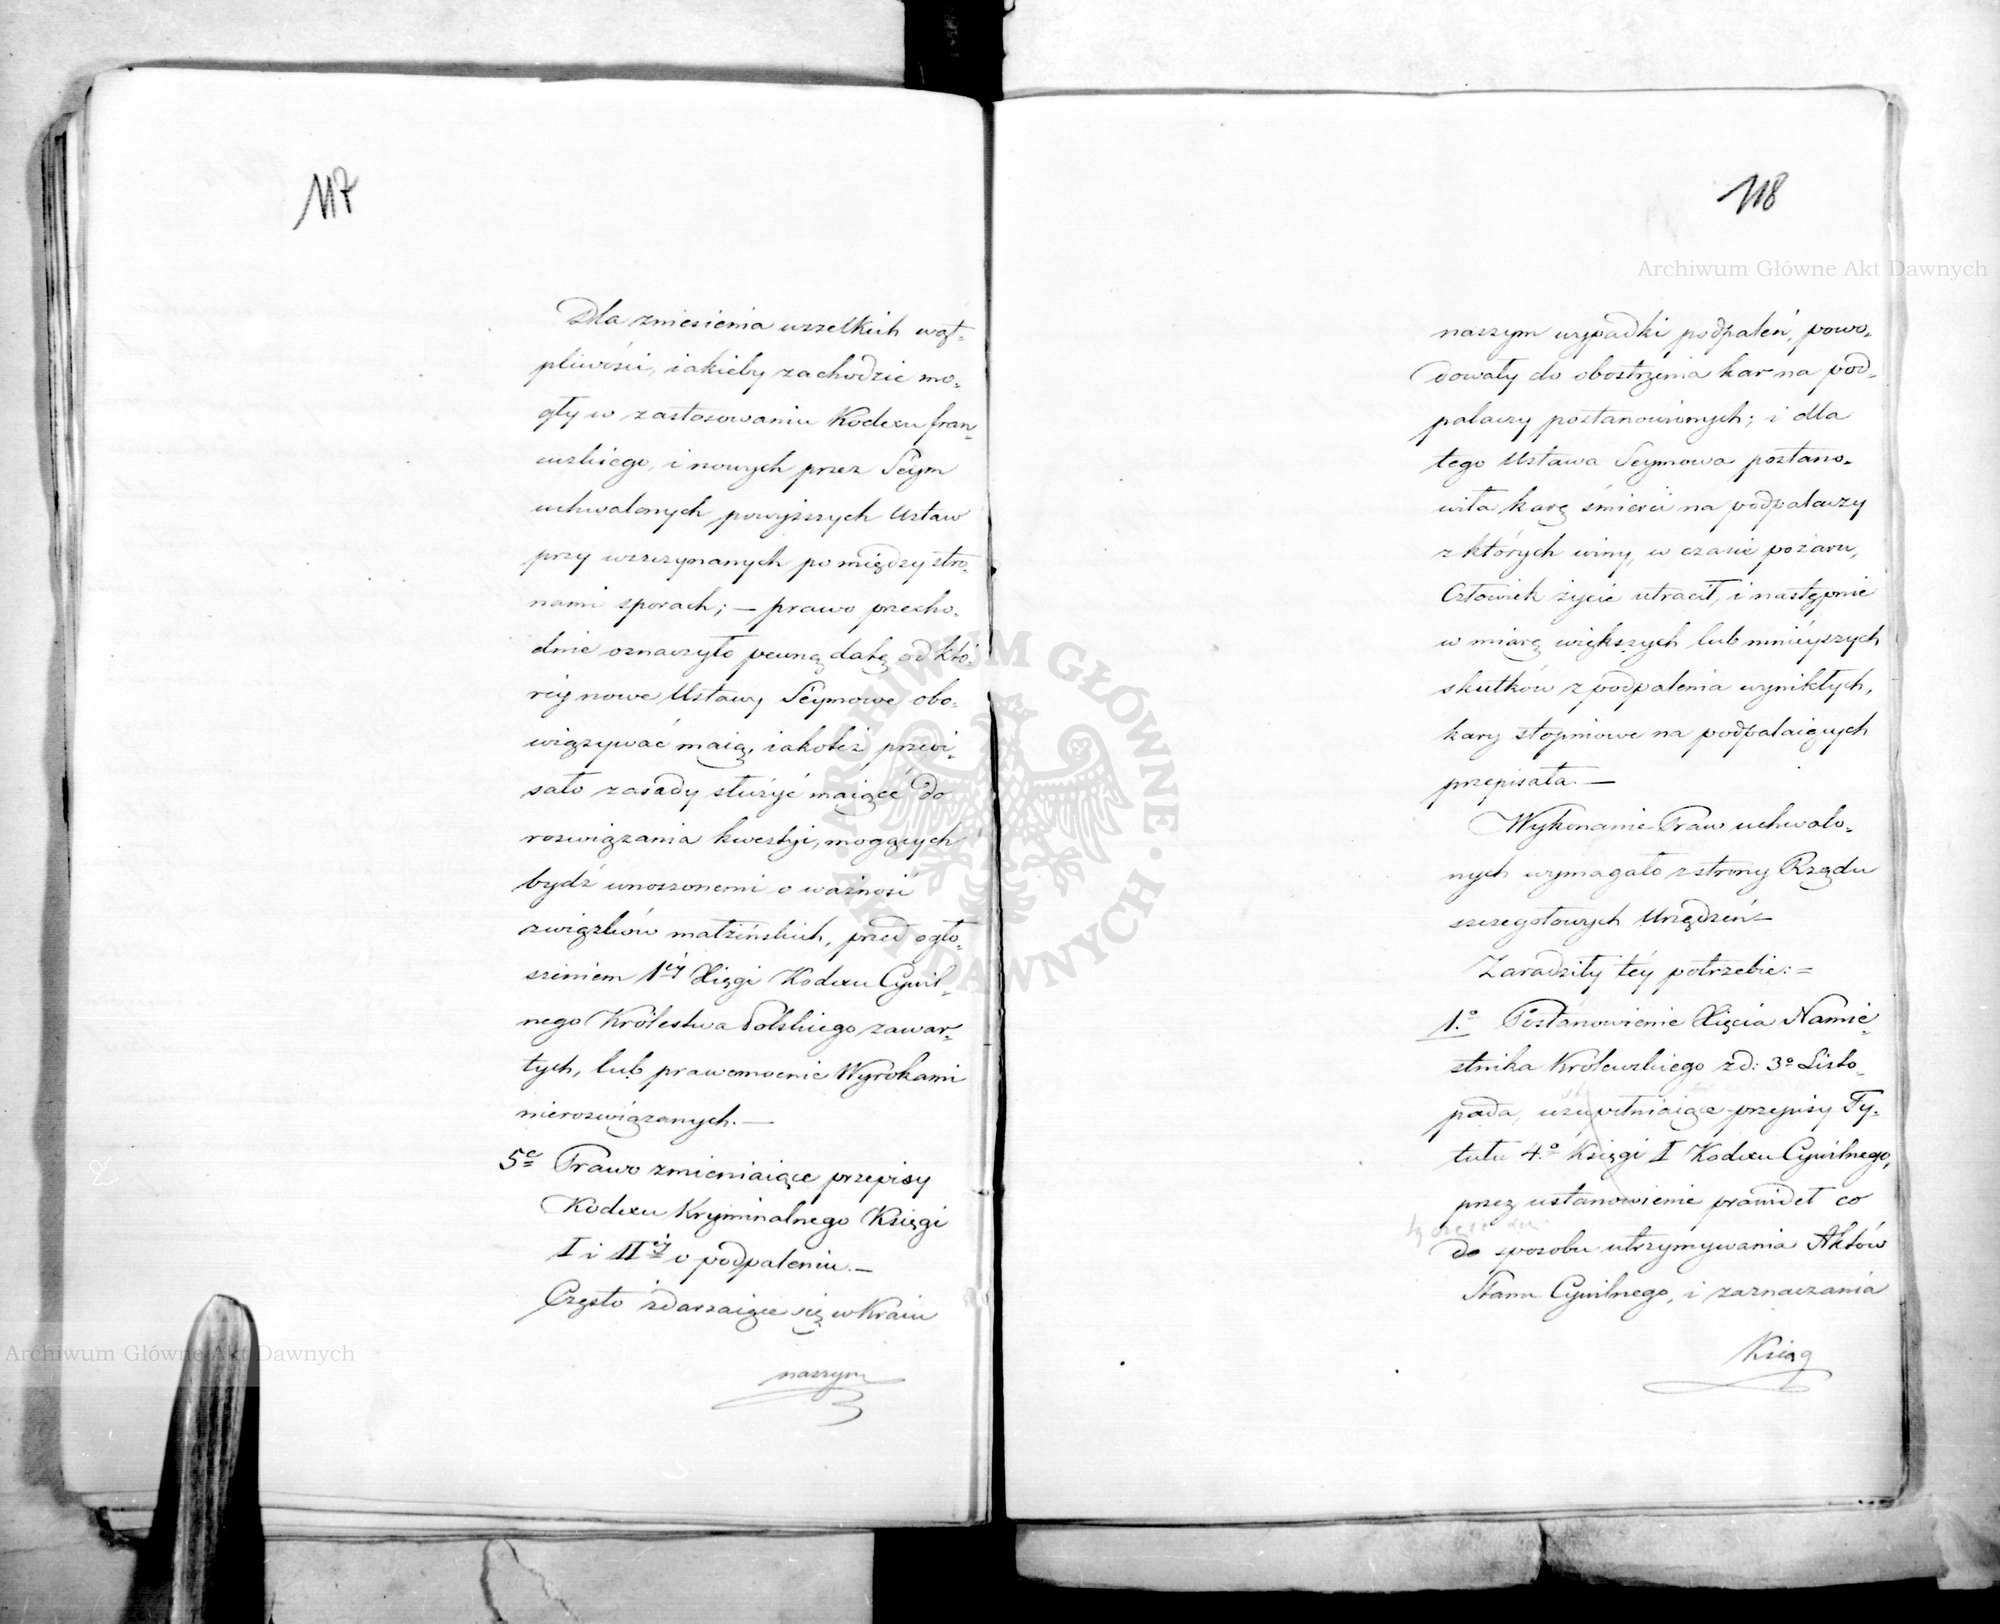 117
Dla zniesienia wszelkich wąt-
pliwości, iakieby zachodzić mo-
gły w zastosowaniu Kodexu fran-
cuzkiego, i nowych przez Seym
uchwalonych powyższych Ustaw
przy wszczynanych pomiędzy stro-
nami sporach; — prawo przecho-
dnie oznaczyło pewną datę od któ-
réy nowe Ustawy Seymowe obo-
wiązywać maią, iakoteż przepi-
sało zasady służyć maiące do
rozwiązania kwestyi, mogących
bydź wnoszonemi o ważność
związków małżeńskich, przed ogło-
szeniem 1éy Xięgi Kodexu Cywil-
nego Królestwa Polskiego zawar-
tych, lub prawomocnie Wyrokami
nierozwiązanych. —
5e Prawo zmieniaiące przepisy
Kodexu Kryminalnego Księgi
I i IIéy o podpaleniu. —
Często zdarzaiące się w Kraiu
naszym
118
naszym wypadki podpaleń, powo-
dowały do obostrzenia kar na pod-
palaczy postanowionych; i dla
tego Ustawa Seymowa postano-
wiła karę śmierci na podpalaczy
z których winy, w czasie pożaru,
Człowiek życie utracił, i następnie
w miarę większych lub mnieyszych
skutków z podpalenia wynikłych,
kary stopniowe na podpalaiących
przepisała. —
Wykonanie Praw uchwalo-
nych wymagało z strony Rządu
szczegółowych Urządzeń —
Zaradziły téy potrzebie: =
1.o Postanowienie Xięcia Namie-
stnika Królewskiego z d: 3o Listo-
pada, uzupełniaiące przepisy Ty-
tułu 4.o Księgi I Kodexu Cywilnego,
przez ustanowienie prawideł co
do sposobu utrzymywania Aktów
Stanu Cywilnego, i zaznaczania
Ksiąg
Archiwum Główne Akt Dawnych
Archiwum Główne Akt Dawnych
ARCHIWUM GŁÓWNE · AKT DAWNYCH ·